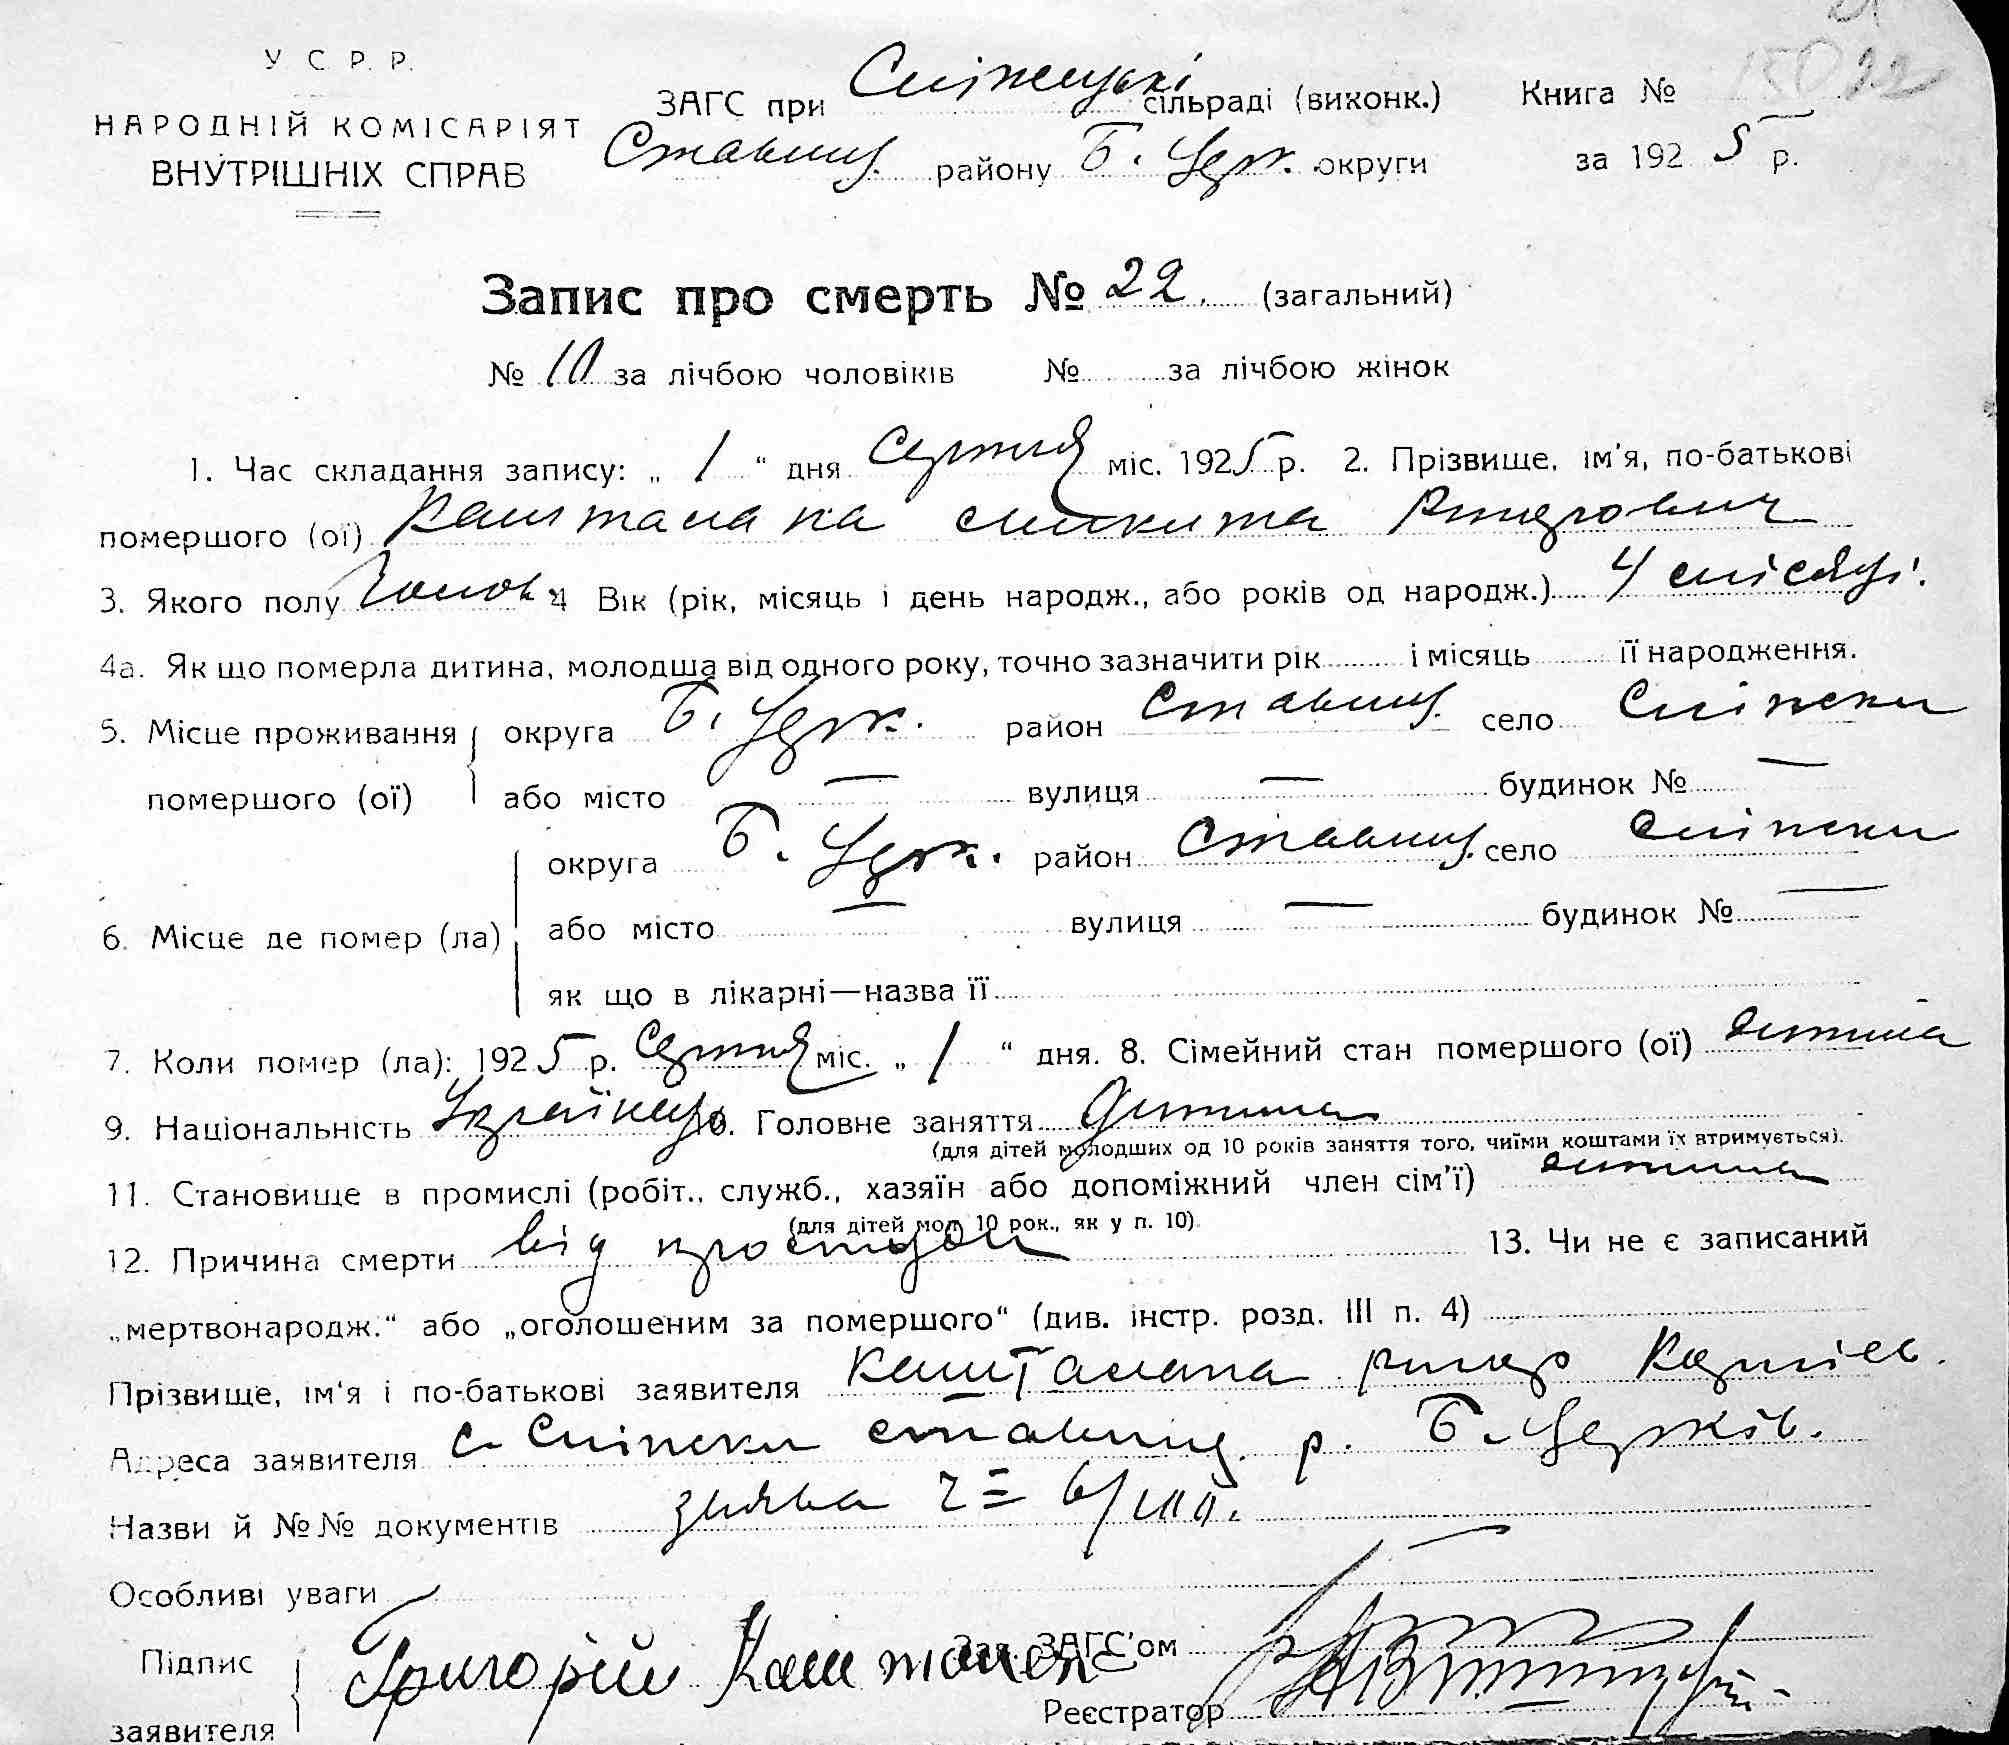 У С Р. Р.
НАРОДНІЙ КОМІСАРІЯТ
ВНУТРІШНІХ СПРАВ
ЗАГС при Сніжецькі сільраді (виконк.)
Ставищ. району Б. Церк. округи
Книга №
за 1925 р.
Запис про смерть № 22. (загальний)
№ 10 за лічбою чоловіків № за лічбою жінок
1. Час складання запису: „ 1 “ дня Серпня міс. 1925 р. 2. Прізвище, ім'я, по-батькові
помершого (ої) Каштана
3. Якого полу Чолов. 4 Вік (рік, місяць і день народж., або років од народж.) 4 місяці.
4а. Як що померла дитина, молодша від одного року, точно зазначити рік і місяць її народження.
5. Місце проживання помершого (ої) округа Б. Церк. район Ставищ. село Сніжки
або місто — вулиця — будинок № —
6. Місце де помер (ла) округа Б. Церк. район Ставищ. село Сніжки
або місто — вулиця — будинок № —
як що в лікарні—назва її
7. Коли помер (ла): 1925 р. Серпня міс. „ 1 “ дня. 8. Сімейний стан помершого (ої) дитина
9. Національність Українец 10. Головне заняття Дитина
(для дітей молодших од 10 років заняття того, чиїми коштами їх втримується).
11. Становище в промислі (робіт., служб., хазяїн або допоміжний член сім'ї) дитина
(для дітей мол. 10 рок., як у п. 10).
12. Причина смерти від простуди 13. Чи не є записаний
„мертвонародж.“ або „оголошеним за помершого“ (див. інстр. розд. III п. 4)
Прізвище, ім'я і по-батькові заявителя Каштана
Адреса заявителя с. Сніжки Ставищ. р. Б. Церків.
Назви й №№ документів заява
Особливі уваги
Підпис заявителя Григорій Каштанок
Зав. ЗАГС'ом
Реєстратор